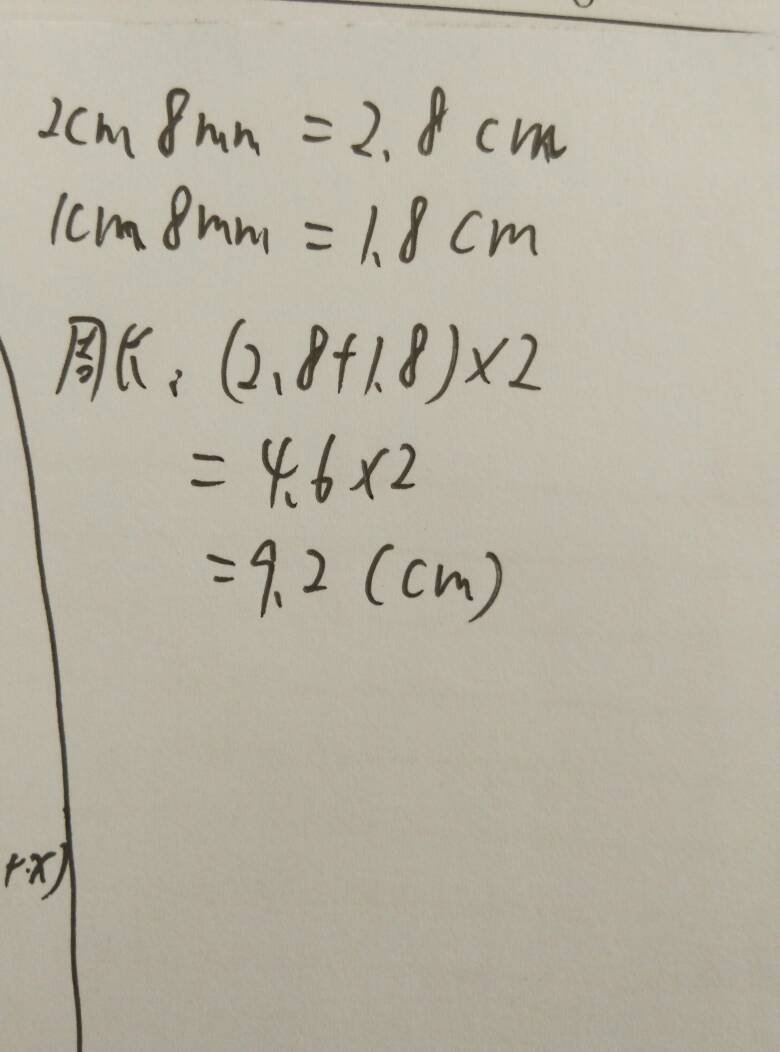 2cm 8mm = 2.8 cm
1cm 8mm = 1.8 cm
周长: (2.8+1.8)×2
= 4.6×2
=9.2 (cm)
+·x)